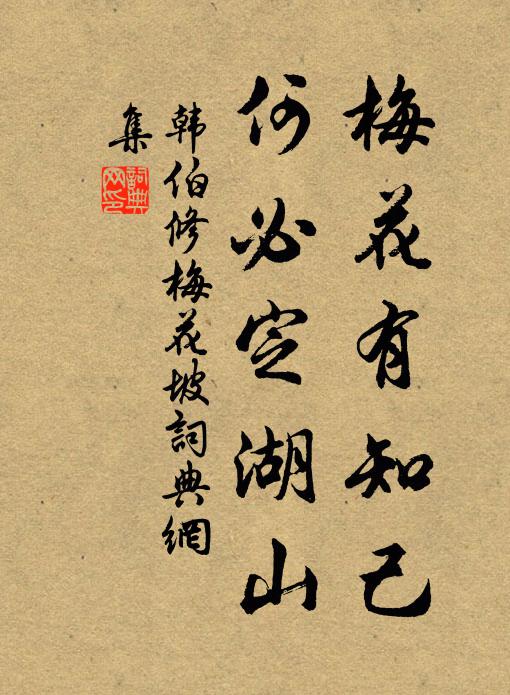 梅花有知己
何必定湖山
韩伯修梅花坡詞典網
集
詞典網印